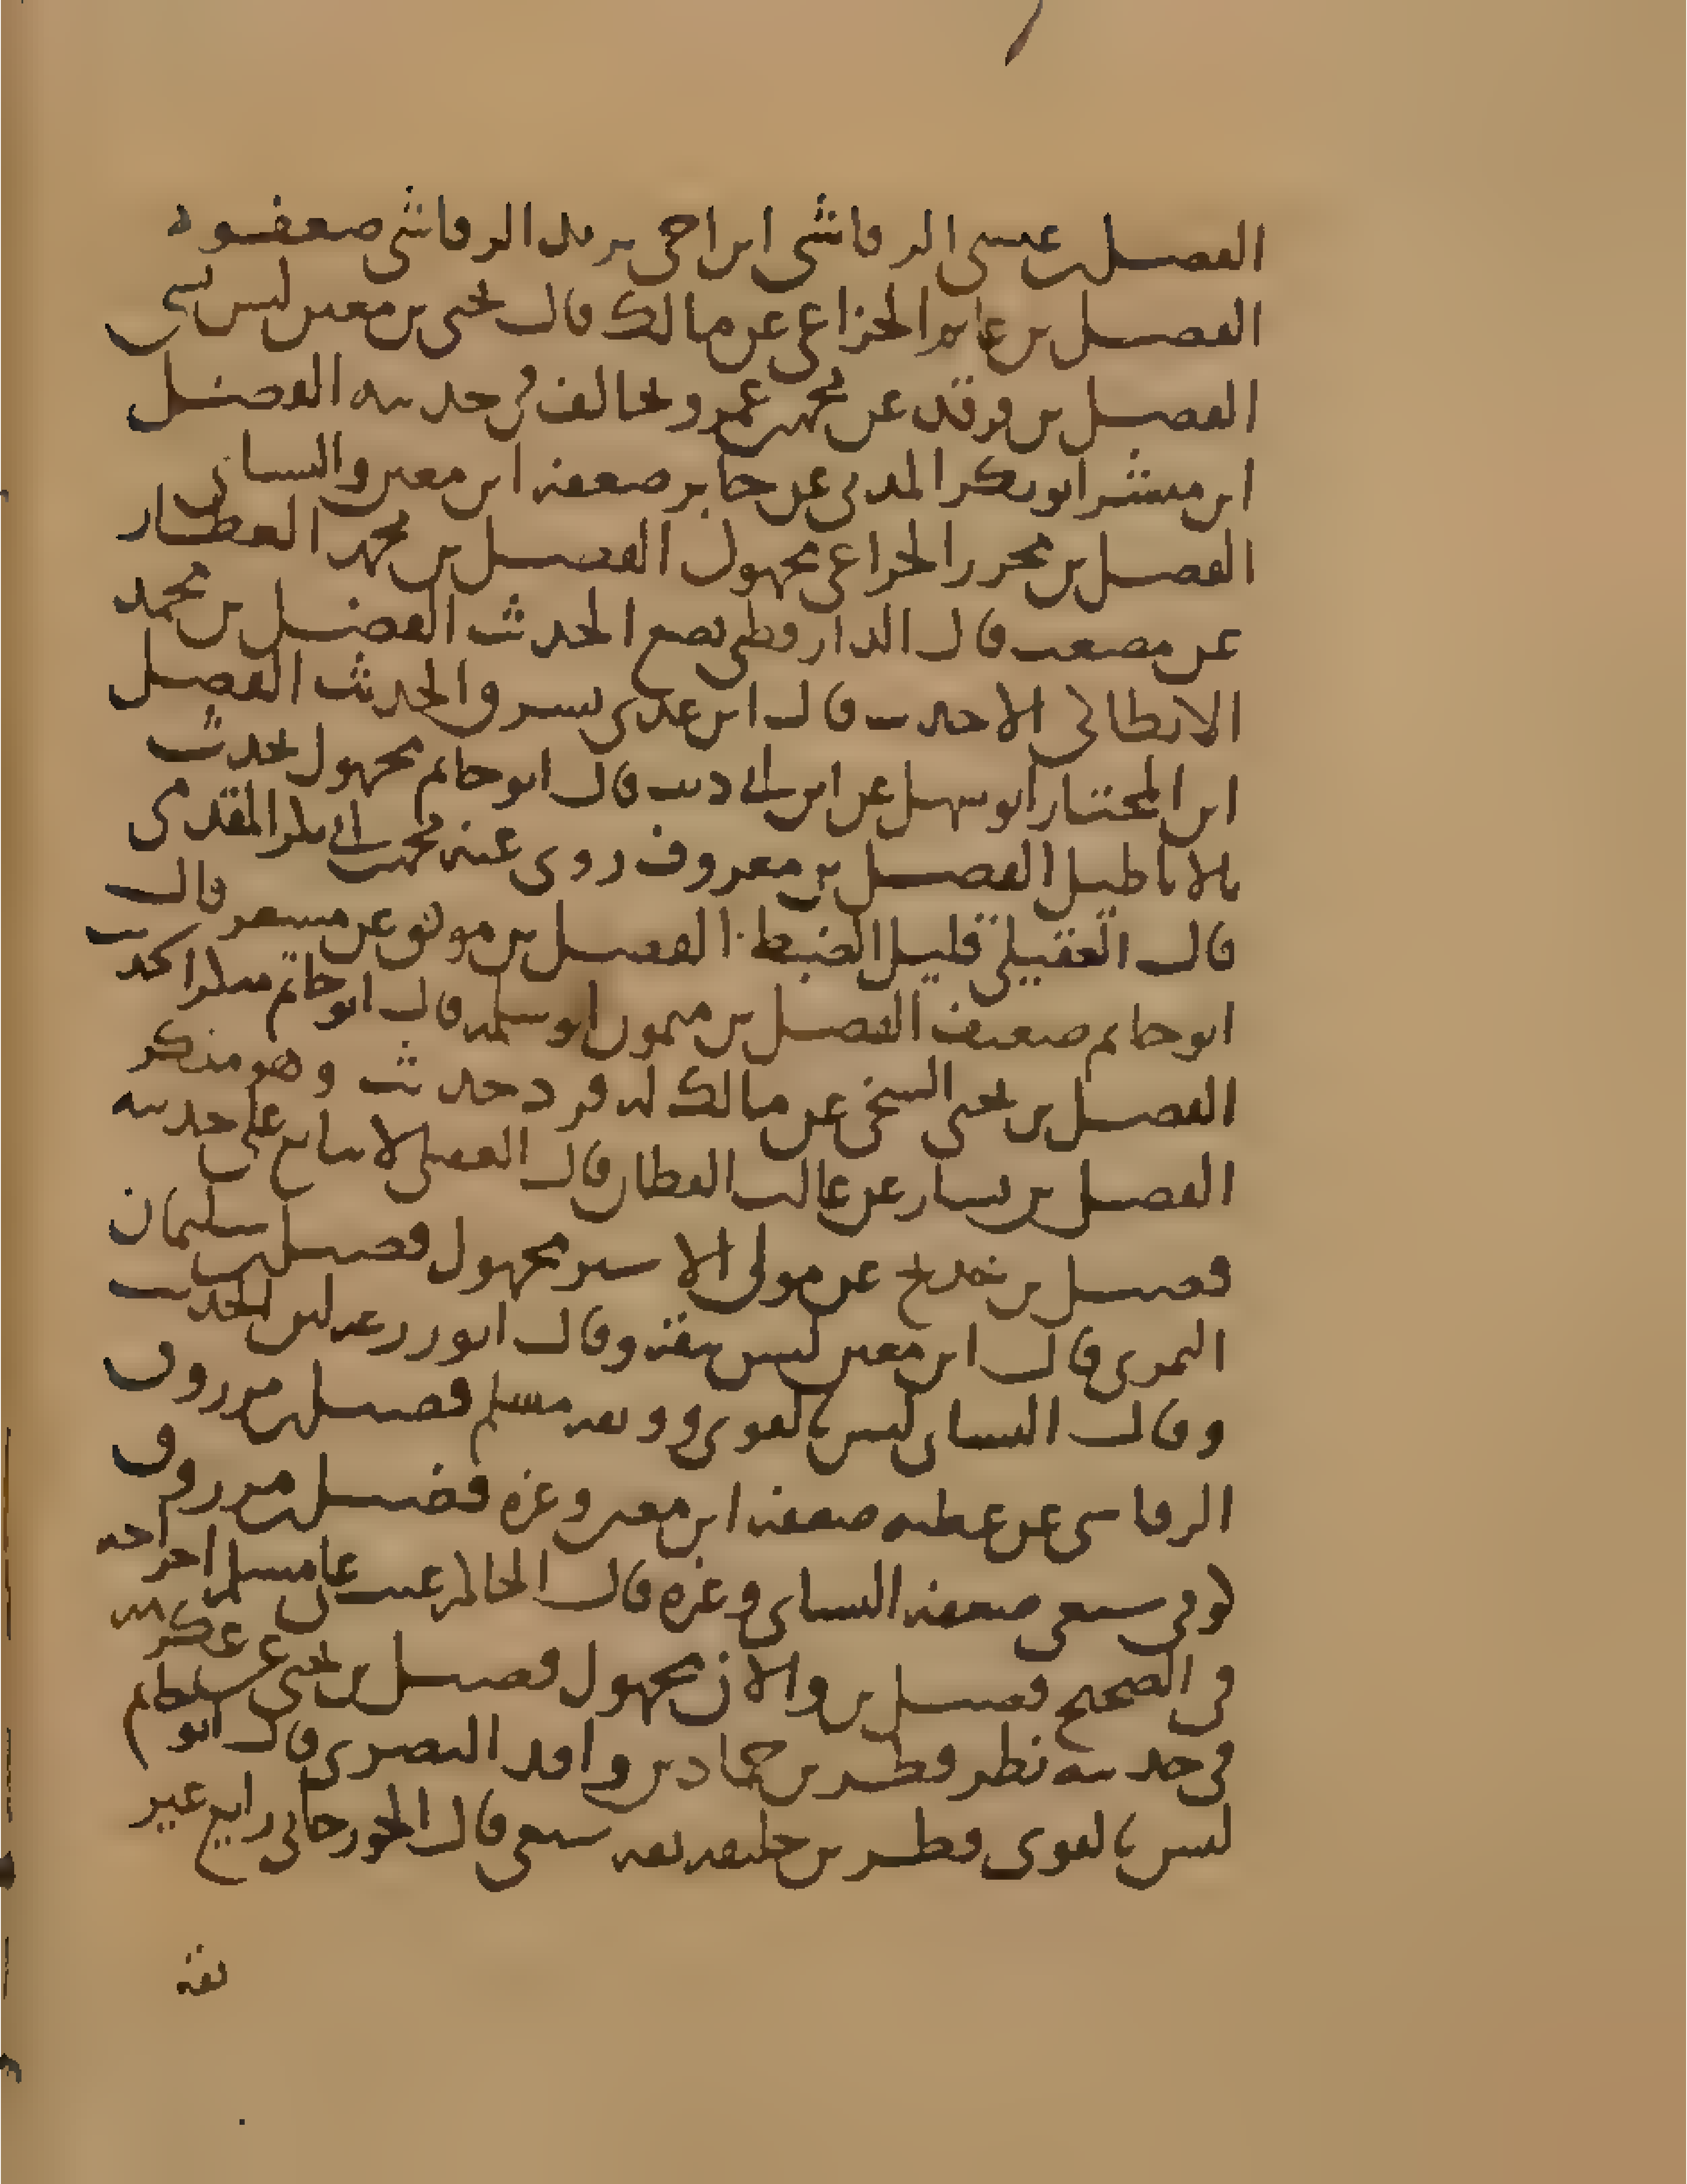 الفضل بن عيسى الرقاشي ابن اخي يزيد الرقاشي ضعفوه
الفضل بن غانم الخزاعي عن مالك قال يحيى بن معين ليس بشي
الفضل بن فرقد عن محمد بن عمرو يخالف في حديثه الفضل
ابن مبشر ابو بكر المدني عن جابر ضعفه ابن معين والنسائي
الفضل بن محرر الخزاعي مجهول الفضل بن محمد العطار
عن مصعب قال الدارقطني يضع الحديث الفضل بن محمد
الانطاكي الاحدب قال ابن عدي يسرق الحديث الفضل
ابن المختار ابو سهل عن ابن ابي ذيب قال ابو حاتم مجهول يحدث
بالاباطيل الفضل بن معروف روى عنه محمد بن ابي بكر المقدمي
قال العقيلي قليل الضبط الفضل بن موفق عن مسعر قال
ابو حاتم ضعيف الفضل بن ميمون ابو سلمه قال ابو حاتم منكر الحديث
الفضل بن يحيى السنجي عن مالك له فرد حديث وهو منكر
الفضل بن يسار عن غالب القطان قال العقيلي لا يتابع على حديثه
فضيل بن خديج عن مولى الاشتر مجهول فضيل بن سليمان
النمري قال ابن معين ليس بثقة وقال ابو زرعه لين الحديث
وقال النسائي ليس بالقوي ووثقه مسلم فضيل بن مرزوق
الرقاشي عن عطيه ضعفه ابن معين وغيره فضيل بن مرزوق
كوفي شيعي ضعفه النسائي وغيره قال الحاكم عيب على مسلم اخراجه
في الصحيح فضيل بن والان مجهول فضيل بن يحيى عن عكرمه
في حديثه نظر فطر بن حماد بن واقد البصري قال ابو حاتم
ليس بالقوي فطر بن خليفه ثقه شيعي قال الجوزجاني زايغ غير
ثقة